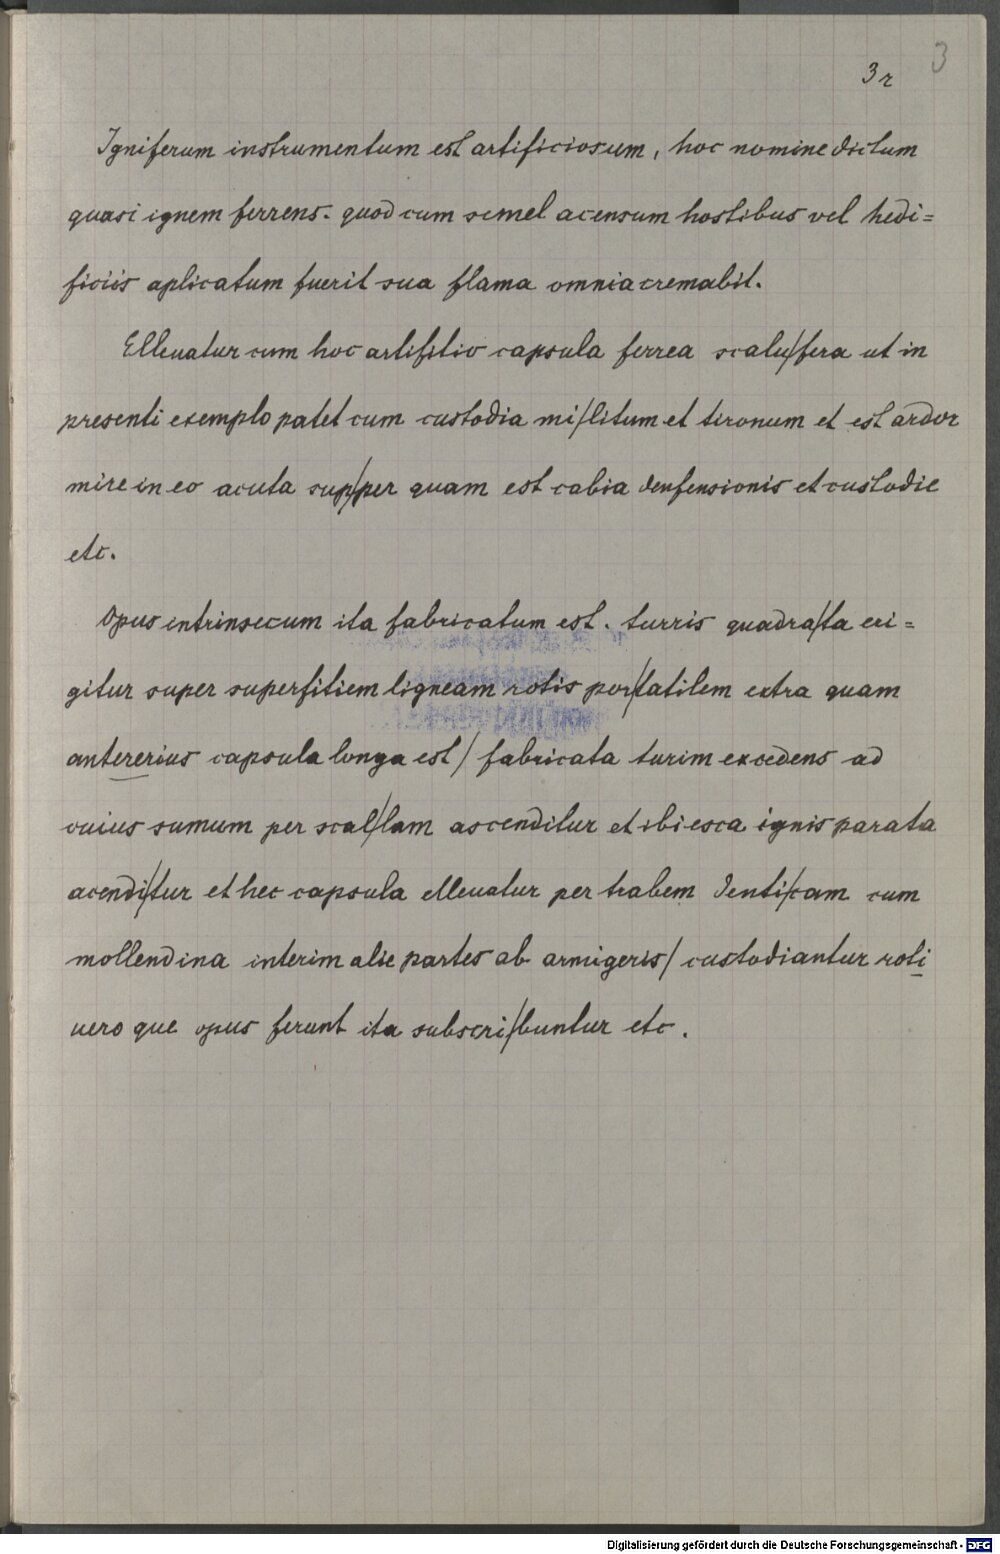 3
3r
Igniferum instrumentum est artificiosum, hoc nomine dictum
quasi ignem ferrens. quod cum semel acensum hostibus vel hedi=
ficiis aplicatum fuerit sua flama omnia cremabit.
Elleuatur cum hoc artifitio capsula ferrea scalu/fera ut in
presenti exemplo patet cum custodia mi/litum et tironum et est ardor
mire in eo acuta sup/per quam est cabia denfensionis et custodie
etc.
Opus intrinsecum ita fabricatum est. turris quadra/ta eri=
gitur super superfitiem ligneam rotis por/tatilem extra quam
antererius capsula longa est/ fabricata turim excedens ad
cuius sumum per scal/lam ascenditur et ibi esca ignis parata
acendi/tur et hec capsula elleuatur per trabem denti/cam cum
mollendina interim alie partes ab armigeris/ custodiantur roti
uero que opus ferunt ita subscri/buntur etc.
Digitalisierung gefördert durch die Deutsche Forschungsgemeinschaft - DFG